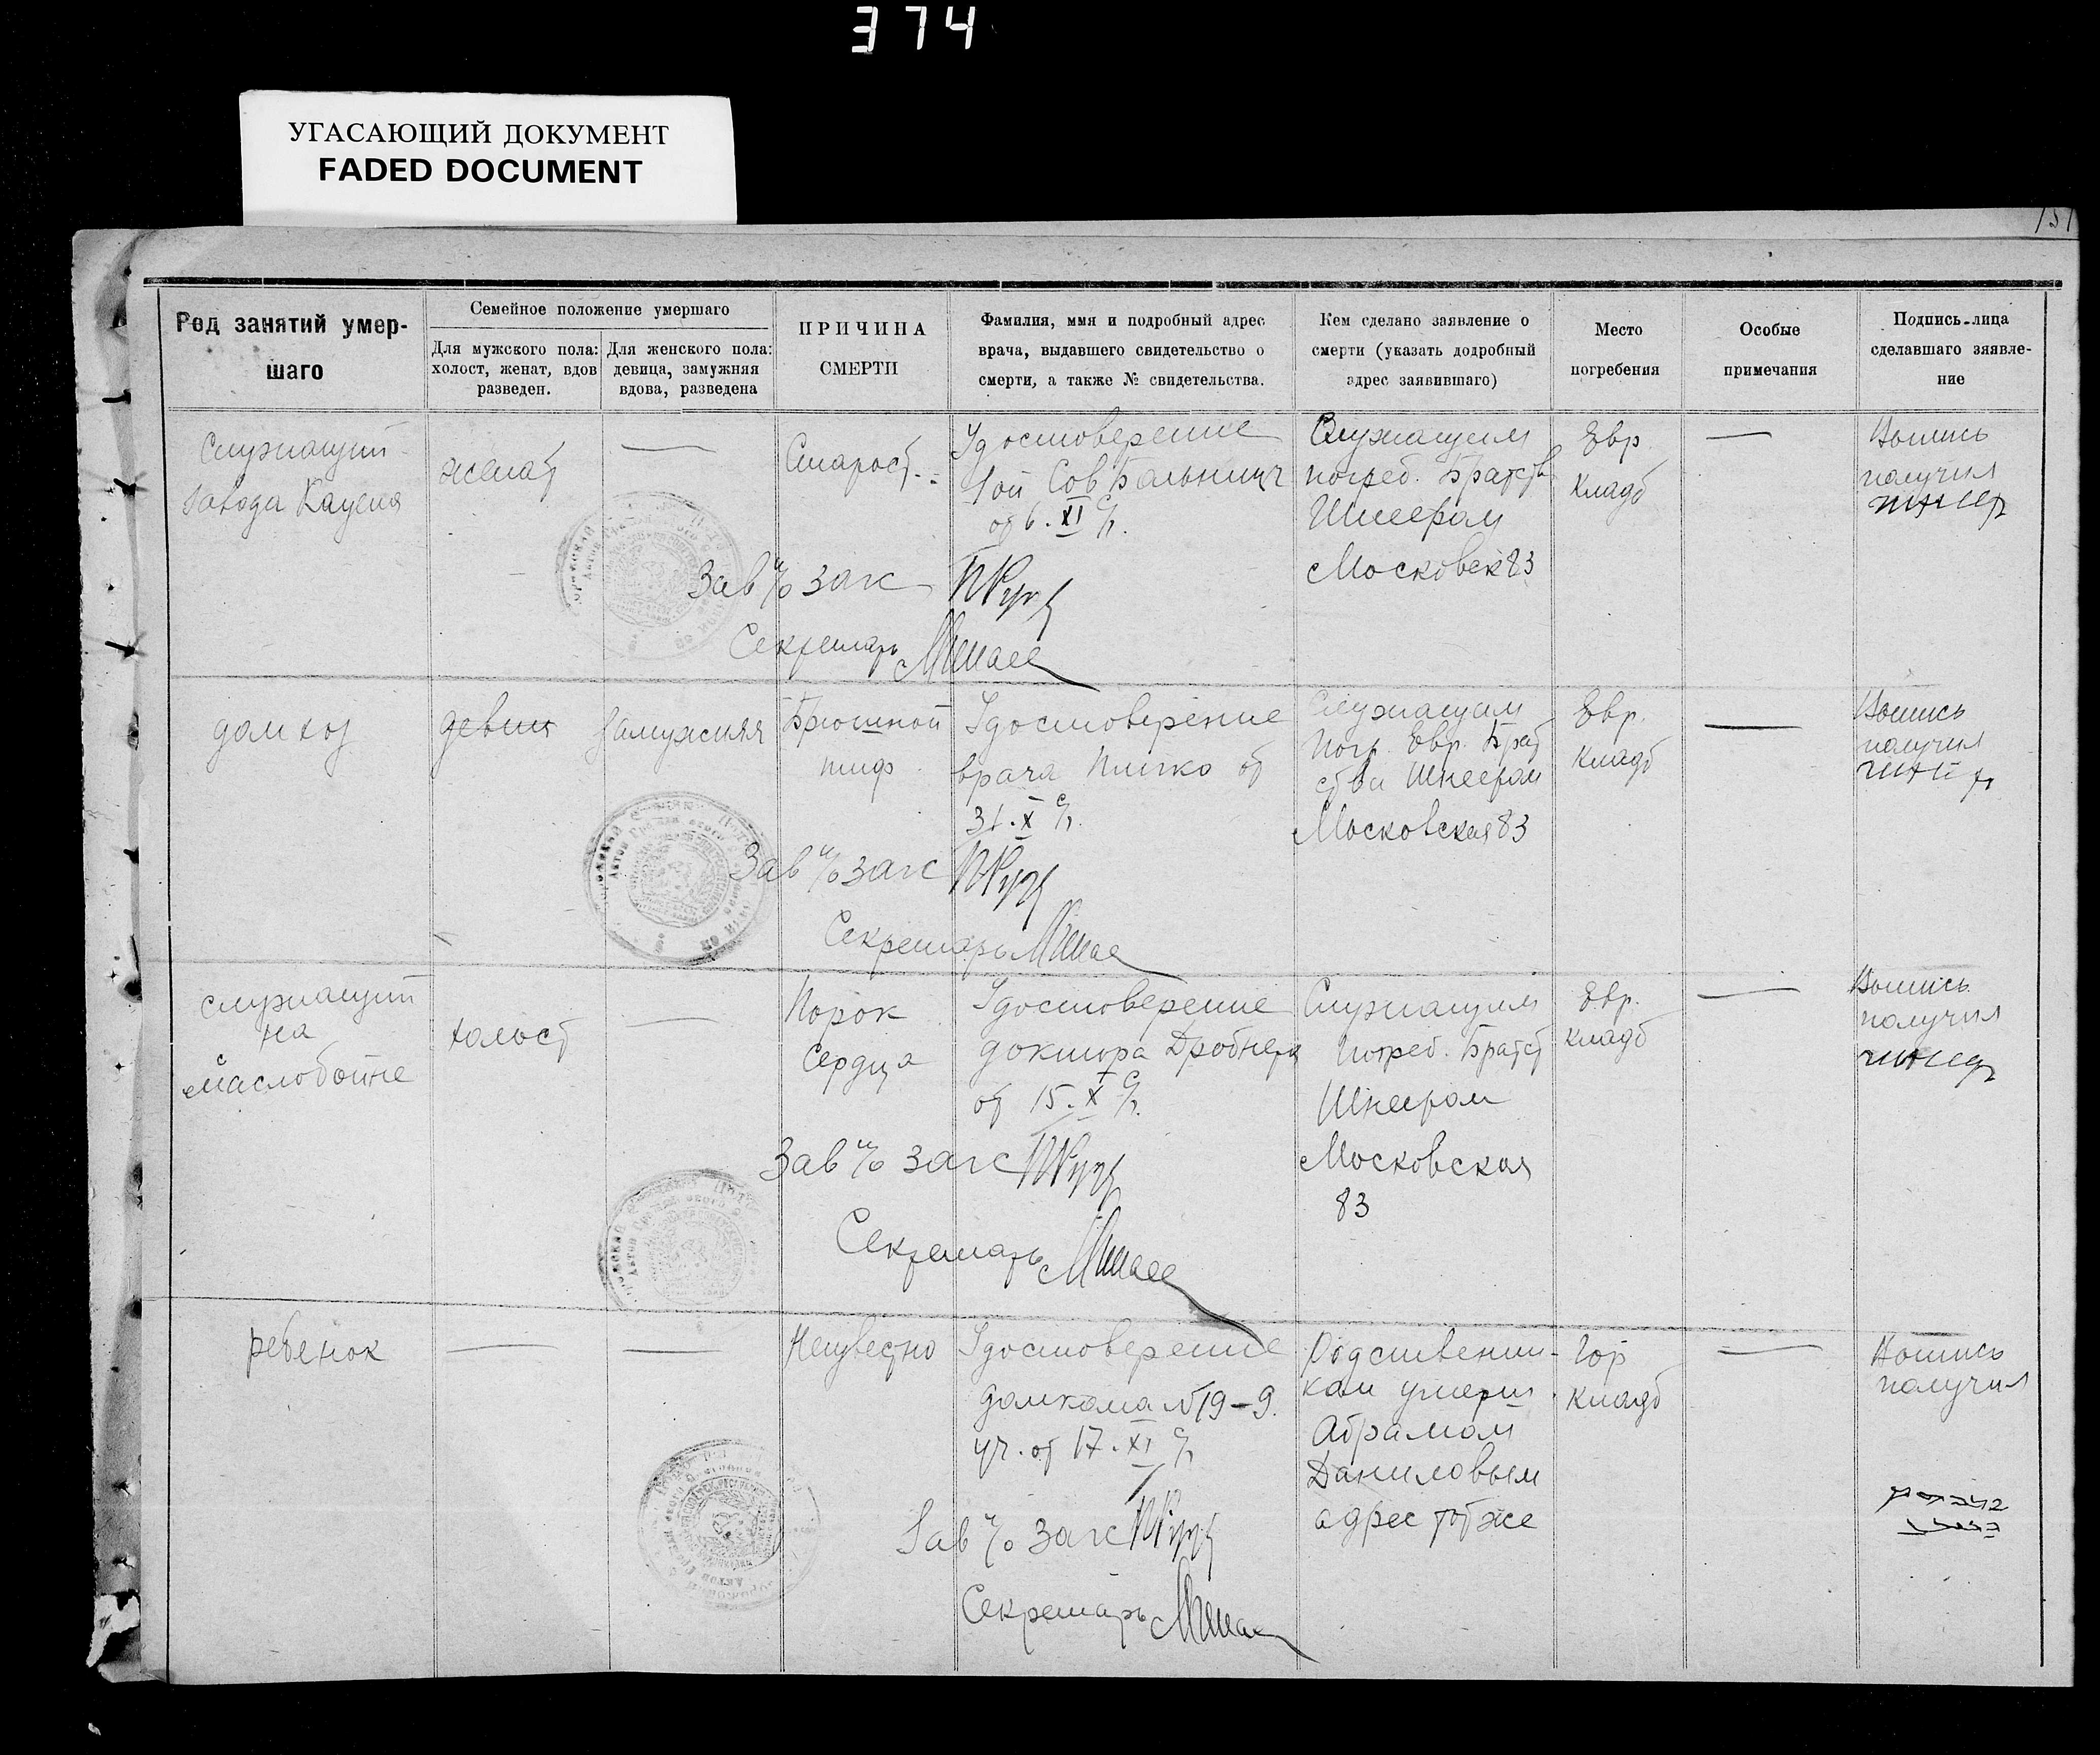 374
УГАСАЮЩИЙ ДОКУМЕНТ
FADED DOCUMENT
151
Род занятий умер-
шаго
Семейное положение умершаго
Для мужского пола:
холост, женат, вдов
разведен.
Для женского пола:
девица, замужняя
вдова, разведена
ПРИЧИНА
СМЕРТИ
Фамилия, имя и подробный адрес
врача, выдавшего свидетельство о
смерти, а также № свидетельства.
Кем сделано заявление о
смерти (указать додробный
адрес заявившаго)
Место
погребения
Особые
примечания
Подпись лица
сделавшаго зяявле-
ние
Служащий
завода
женат
—
Старост.
Удостоверение
1ой Сов Больницы
от 6. XI с/г.
Служащим
погреб. Братств
Шнеером
Московск 83
Евр.
кладб
—
Выпись
получил
Зав п/о загс
Секретарь
дом хоз
девиц
замужняя
Брюшной
тиф
Удостоверение
врача от
31. X с/г.
Служащим
Погр. Евр. Брат
ства Шнеером
Московская 83
Евр.
кладб
—
Выпись
получил
Зав п/о загс
Секретарь
служащий
на
маслобойне
холост
—
Порок
сердца
Удостоверение
доктора
от 15. X с/г.
Служащим
Погреб. Братст
Шнеером
Московская
83
Евр.
кладб
—
Выпись
получил
Зав п/о загс
Секретарь
ребенок
—
—
Неизвестно
Удостоверение
домкома №19-9
уч. от 17. XI с/г
Родственни-
ком умерш.
Абрамом
Даниловым
адрес тот же
Гор
кладб
—
Выпись
получил
Зав п/о загс
Секретарь